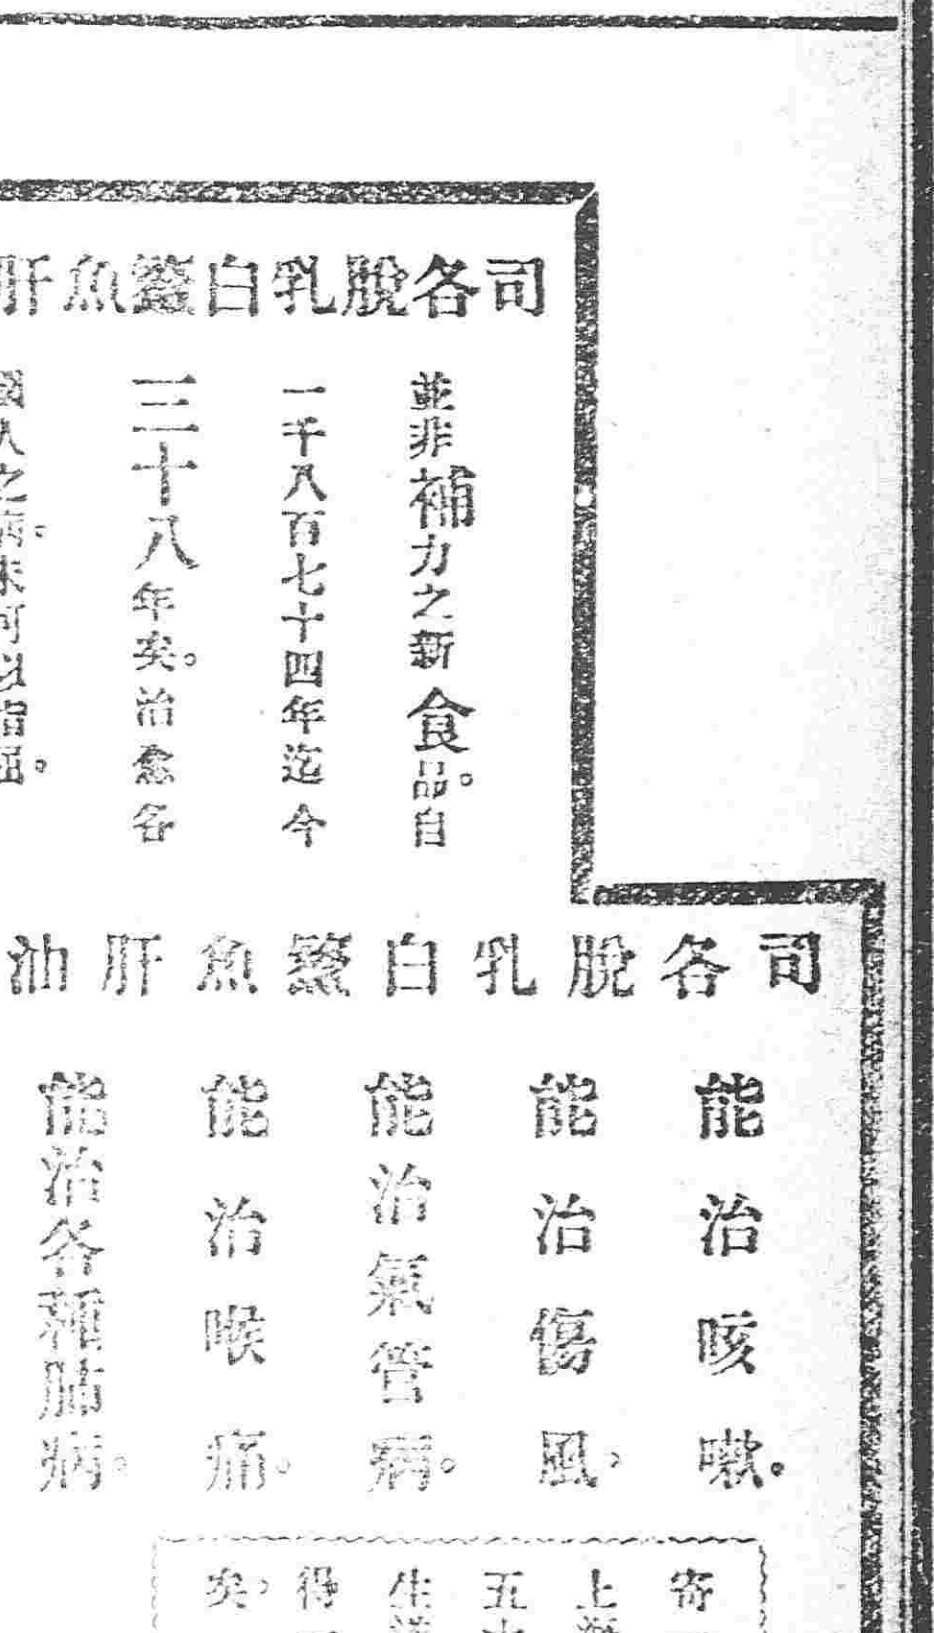 司各脫乳白鰵魚肝
並非補力之新食品。自
一千八百七十四年迄今
三十八年矣。治愈各
國人之病。未可以指屈。
司各脫乳白鰵魚肝油
能治咳嗽。
能治傷風。
能治氣管病。
能治喉痛。
能治各種肺病。
寄
上海
五
生
得
矣。